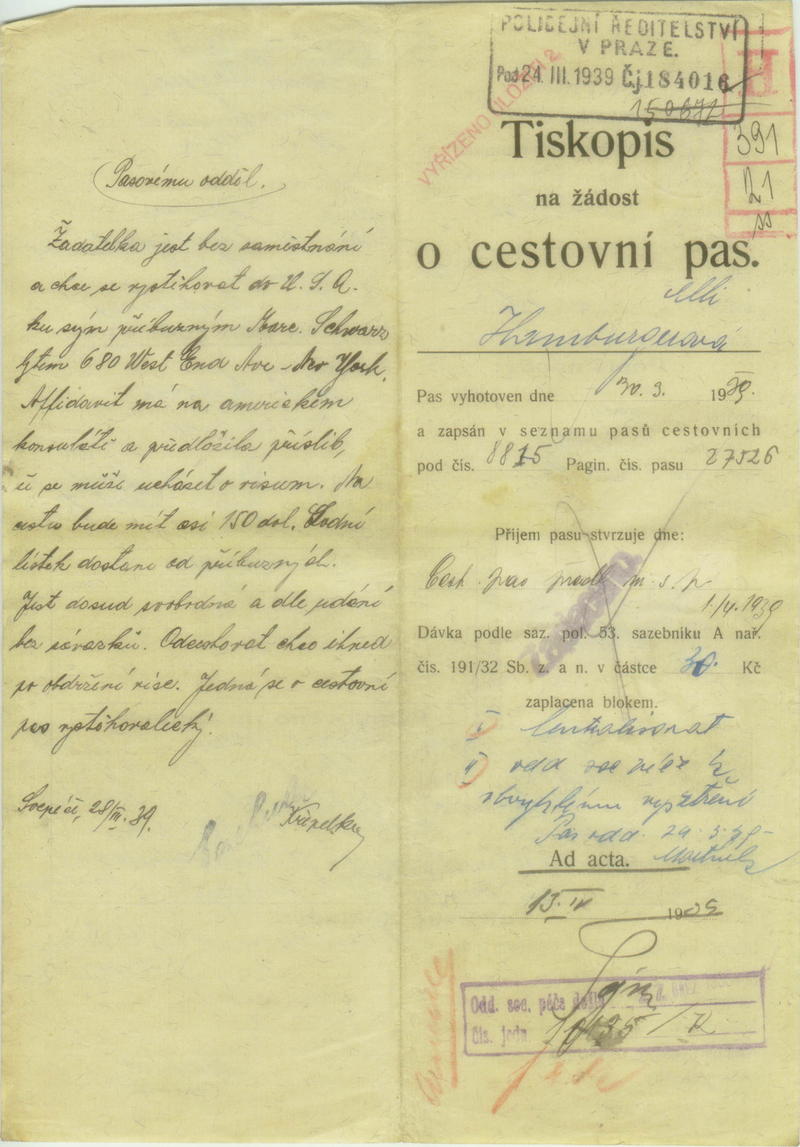 Pasovému odděl.
Žadatelka jest bez zaměstnání
a chce se vystěhovat do U. S. A.
ku svým příbuzným Marc. Schwarz
bytem 680 West End Ave - New York.
Affidavit má na americkém
konsulátě a předložila příslib,
ž se může ucházet o visum. Na
cestu bude mít asi 150 dol. Lodní
lístek dostane od příbuzných.
Jest dosud svobodná a dle udání
bez závazků. Odcestovat chce ihned
po obdržení vise. Jedná se o cestovní
pas vystěhovalecký.
28/III. 39.
POLICEJNÍ ŘEDITELSTVÍ
V PRAZE.
Pod 24. III. 1939 Čj 184016
150671
VYŘÍZENO ULOŽITI 2
H
391
21
Tiskopis
na žádost
o cestovní pas.
Elli
Hamburgerová
Pas vyhotoven dne 30. 3. 1939.
a zapsán v seznamu pasů cestovních
pod čís. 8815 Pagin. čís. pasu 27526
Příjem pasu stvrzuje dne:
Cest. pas
1./4. 1939
Dávka podle saz. pol. 53. sazebníku A nař.
čís. 191/32 Sb. z. a n. v částce 30 Kč
zaplacena blokem.
I Centralisovat
II odd soc péče k
obvyklému vyšetření
Pas odd. 29. 3. 39
Ad acta.
13. IV 1939
Odd. soc. péče došlo
čís. jedn. 10135/K